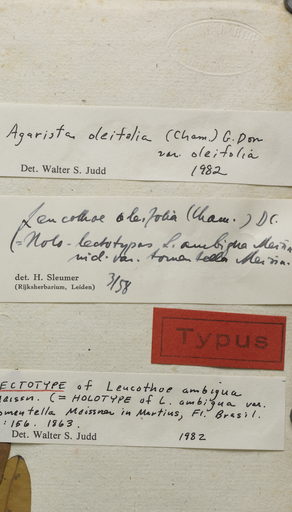 Agarista oleifolia (Cham.) G. Don
var. oleifolia
Det. Walter S. Judd 1982
Leucothoe oleifolia (Cham.) DC.
(= Holo-lectotypus L. ambigua Meissn.
var. tomentella Meissn.
det. H. Sleumer 3/58
(Rijksherbarium, Leiden)
Typus
ECTOTYPE of Leucothoe ambigua
eissn. (= HOLOTYPE of L. ambigua var.
omentella Meissner in Martius, Fl. Brasil.
: 156. 1863.
Det. Walter S. Judd 1982